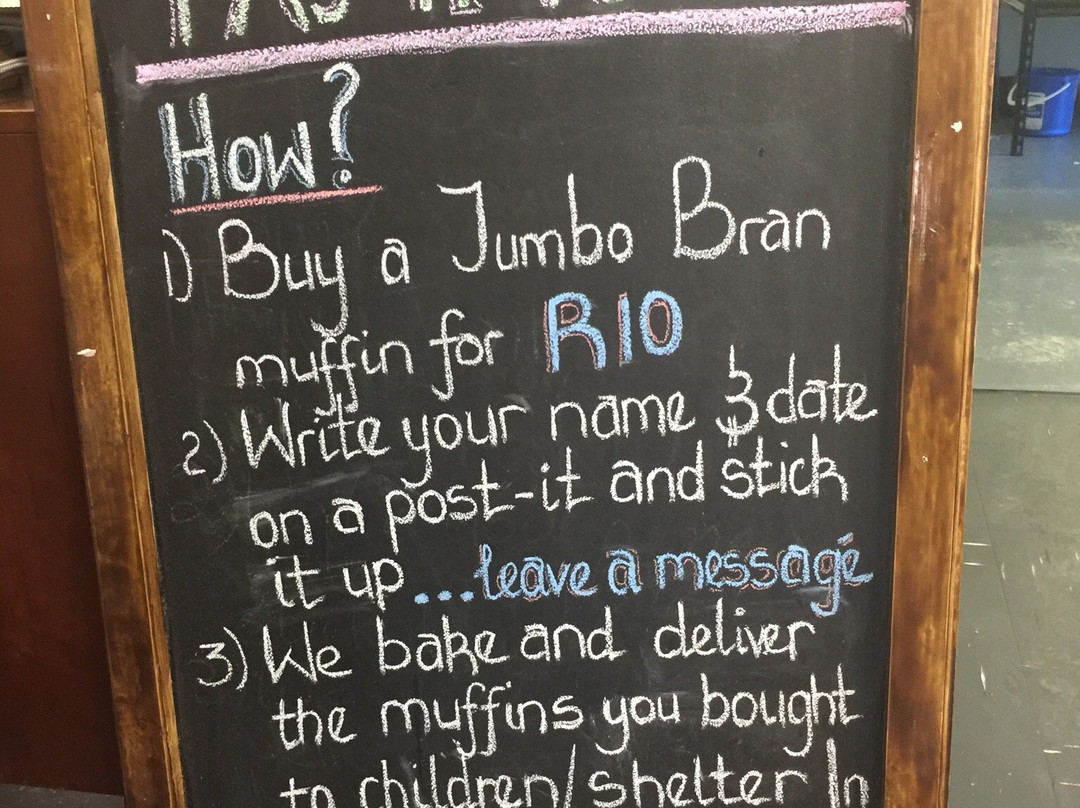 How?
1) Buy a Jumbo Bran
muffin for R10
2) Write your name & date
on a post-it and stick
it up...leave a message
3) We bake and deliver
the muffins you bought
to children/shelter In